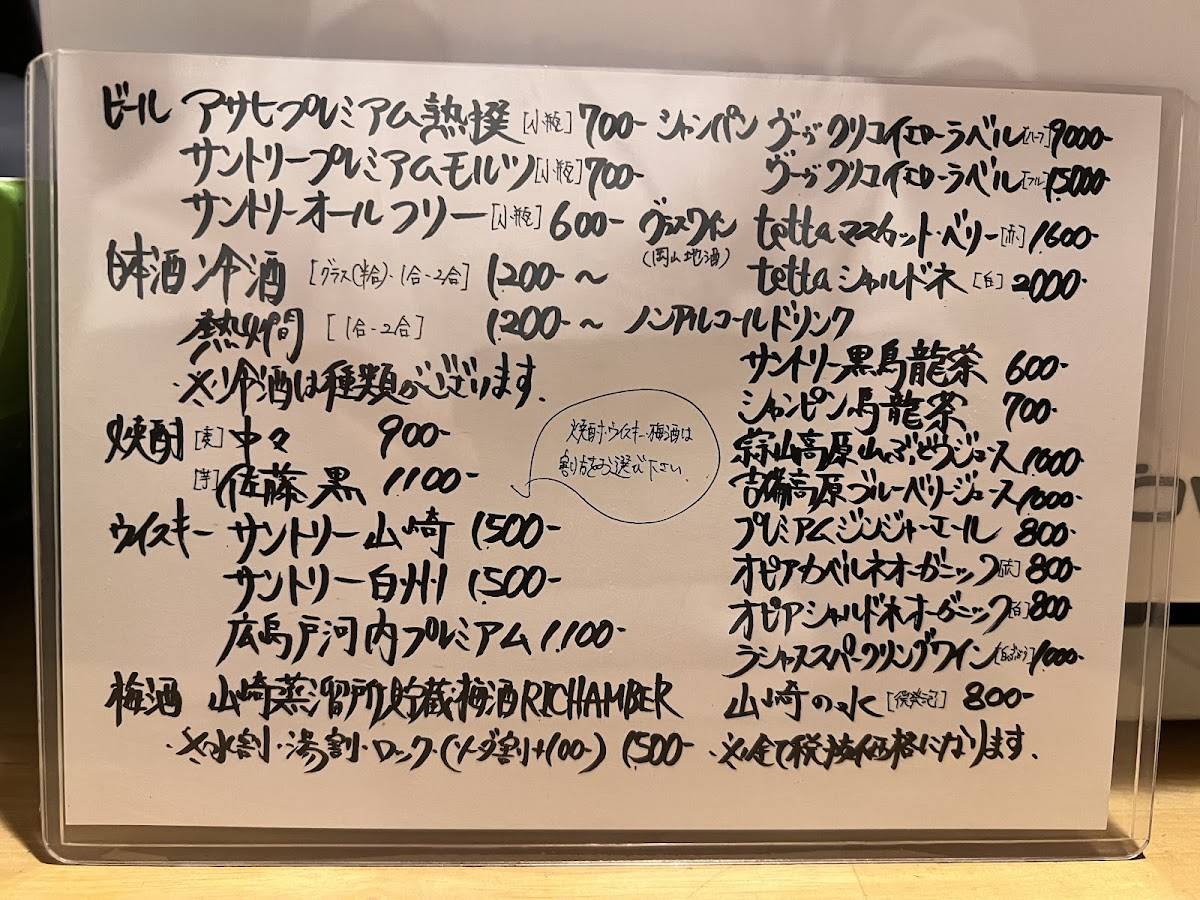 ビール アサヒプレミアム熟撰[小瓶] 700-
サントリープレミアムモルツ[小瓶] 700-
サントリーオールフリー[小瓶] 600-
日本酒 冷酒 [グラス(半合)・1合-2合] 1200-～
熱燗 [1合-2合] 1200-～
※冷酒は種類がございます.
焼酎 [麦] 中々 900-
[芋] 佐藤 黒 1100-
ウイスキー サントリー山崎 1500-
サントリー白州 1500-
広島戸河内プレミアム 1100-
梅酒 山崎蒸溜所貯蔵梅酒RICHAMBER
※水割・湯割・ロック(ソーダ割+100-) 1500-
焼酎・ウイスキー・梅酒は
割り方をお選び下さい.
シャンパン ヴーヴクリコイエローラベル[ハーフ] 9000-
ヴーヴクリコイエローラベル[フル] 15000-
グラスワイン tettaマスカット・ベリー[赤] 1600-
(岡山地酒)
tettaシャルドネ [白] 2000-
ノンアルコールドリンク
サントリー黒烏龍茶 600-
シャンピン烏龍茶 700-
蒜山高原山ぶどうジュース 1000-
吉備高原ブルーベリージュース 1000-
プレミアムジンジャーエール 800-
オピアカベルネオーガニック[赤] 800-
オピアシャルドネオーガニック[白] 800-
ラシャススパークリングワイン[白ぶどう] 1000-
山崎の水 [微発泡] 800-
※全て税抜価格になります.